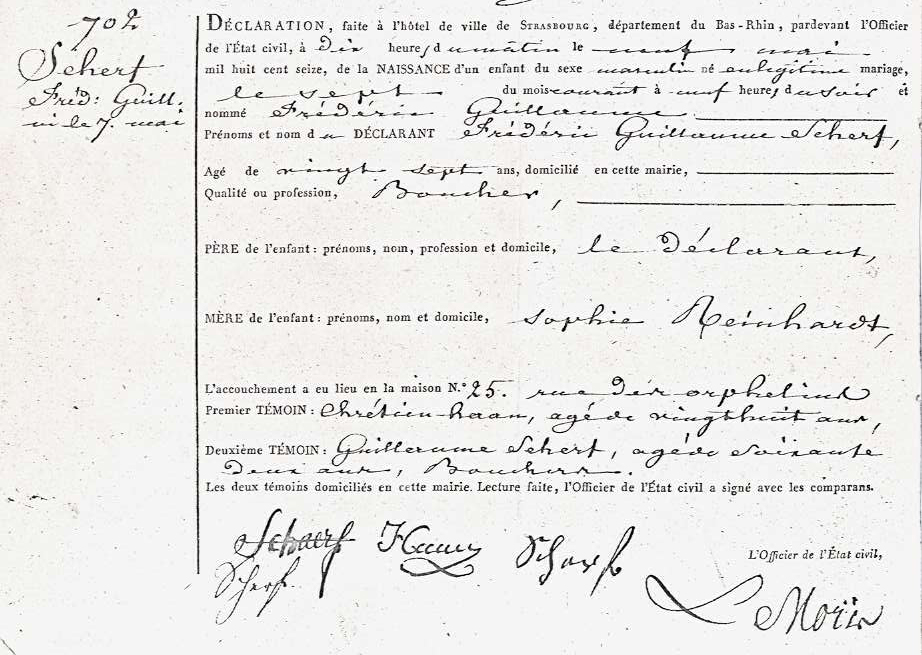 702
Scherf
Fréd: Guill.
né le 7. mai
DÉCLARATION, faite à l'hôtel de ville de STRASBOURG, département du Bas-Rhin, pardevant l'Officier
de l'État civil, à dix heures du matin le neuf mai
mil huit cent seize, de la NAISSANCE d'un enfant du sexe masculin né en légitime mariage,
le sept du mois courant à neuf heures du soir et
nommé Frédéric Guillaume
Prénoms et nom du DÉCLARANT Frédéric Guillaume Scherf,
Agé de vingt sept ans, domicilié en cette mairie,
Qualité ou profession, Boucher,
PÈRE de l'enfant: prénoms, nom, profession et domicile, le Déclarant,
MÈRE de l'enfant: prénoms, nom et domicile, Sophie Reinhardt,
L'accouchement a eu lieu en la maison N.° 25. rue des orphelins
Premier TÉMOIN: Chrétien haan, agé de vingt huit ans,
Deuxième TÉMOIN: Guillaume Scherf, agé de soixante
deux ans, Bouchers.
Les deux témoins domiciliés en cette mairie. Lecture faite, l'Officier de l'État civil a signé avec les comparans.
Schaerf Haan Scherf
Scherf.
L'Officier de l'État civil,